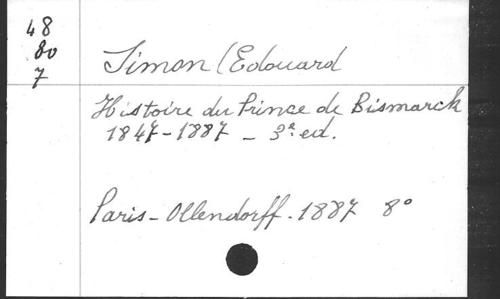 48
80
7
Simon (Edouard
Histoire du Prince de Bismarck
1847-1887 - 3e ed.
Paris - Ollendorff. 1887 8°